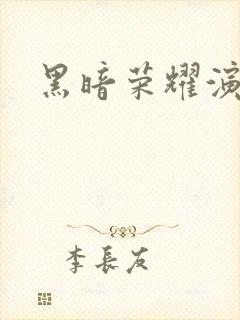 黑暗荣耀演
李長友